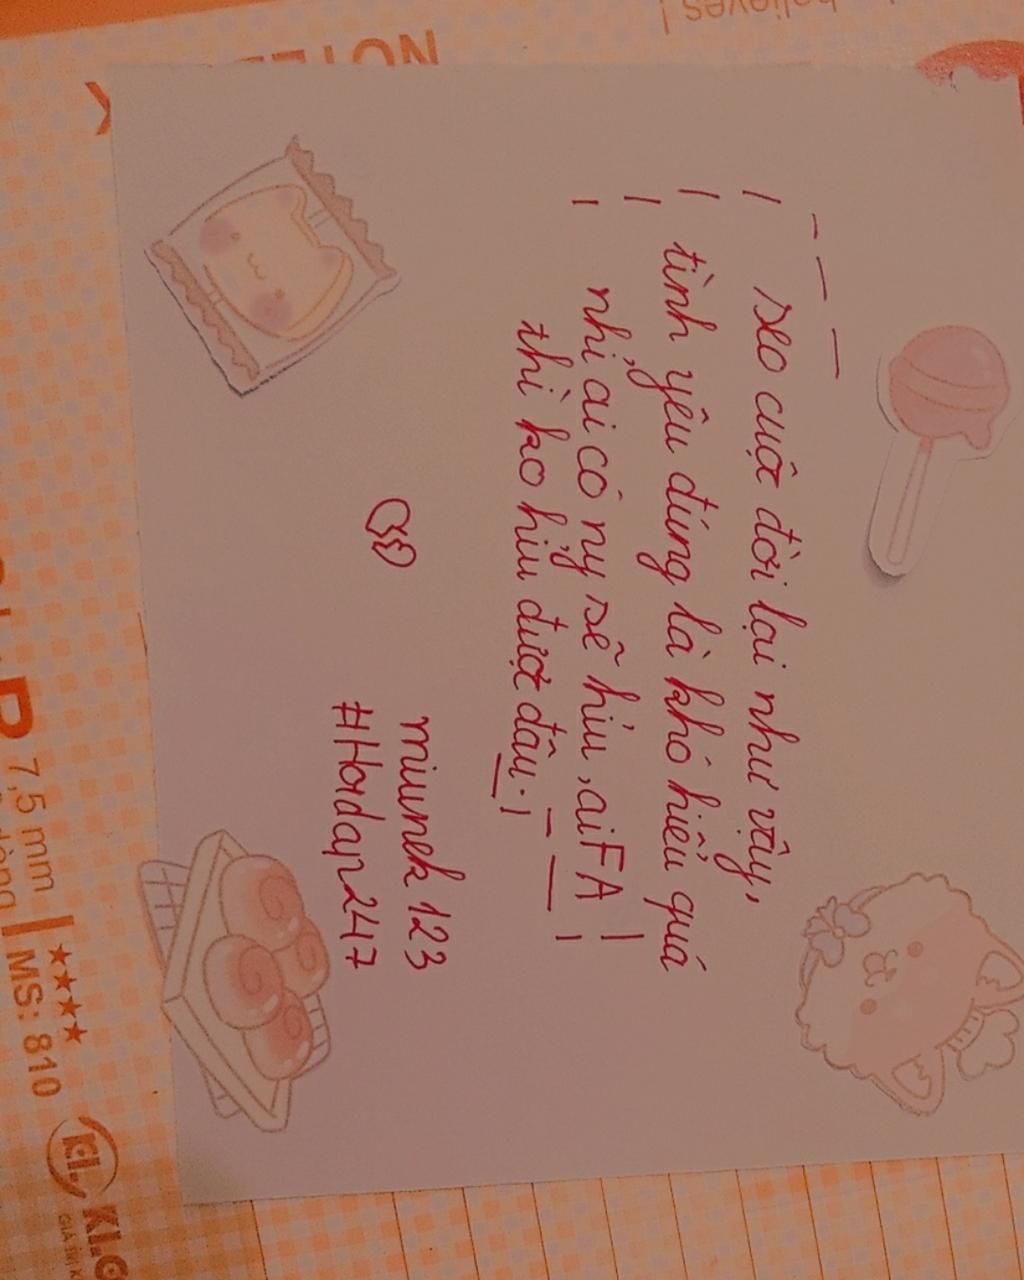 believes!
NOTE
seo cuộc đời lại như vậy,
tình yêu đúng là khó hiểu quá
nhỉ, ai có ny sẽ hỉu, ai FA
thì ko hỉu được đâu.
miunek 123
#Hoidap247
7,5 mm
MS: 810
KLO